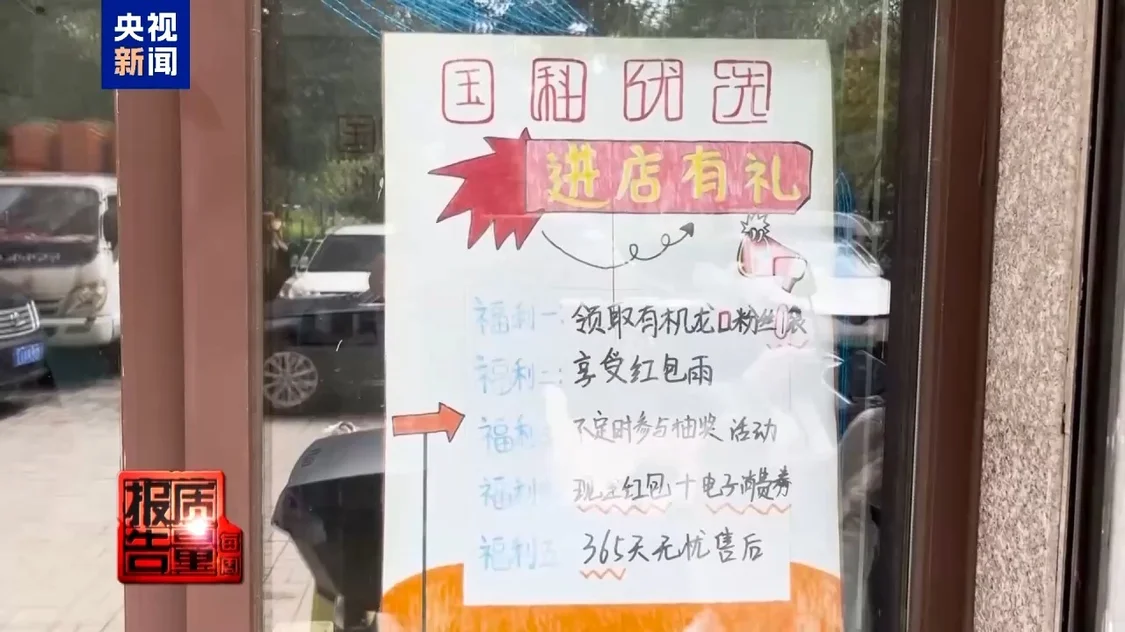 央视
新闻
国科优选
进店有礼
福利一:领取有机龙口粉丝1袋
福利二:享受红包雨
福利三 不定时参与抽奖活动
福利四 现金红包+电子消费券
福利五 365天无忧售后
每周
质量
报告